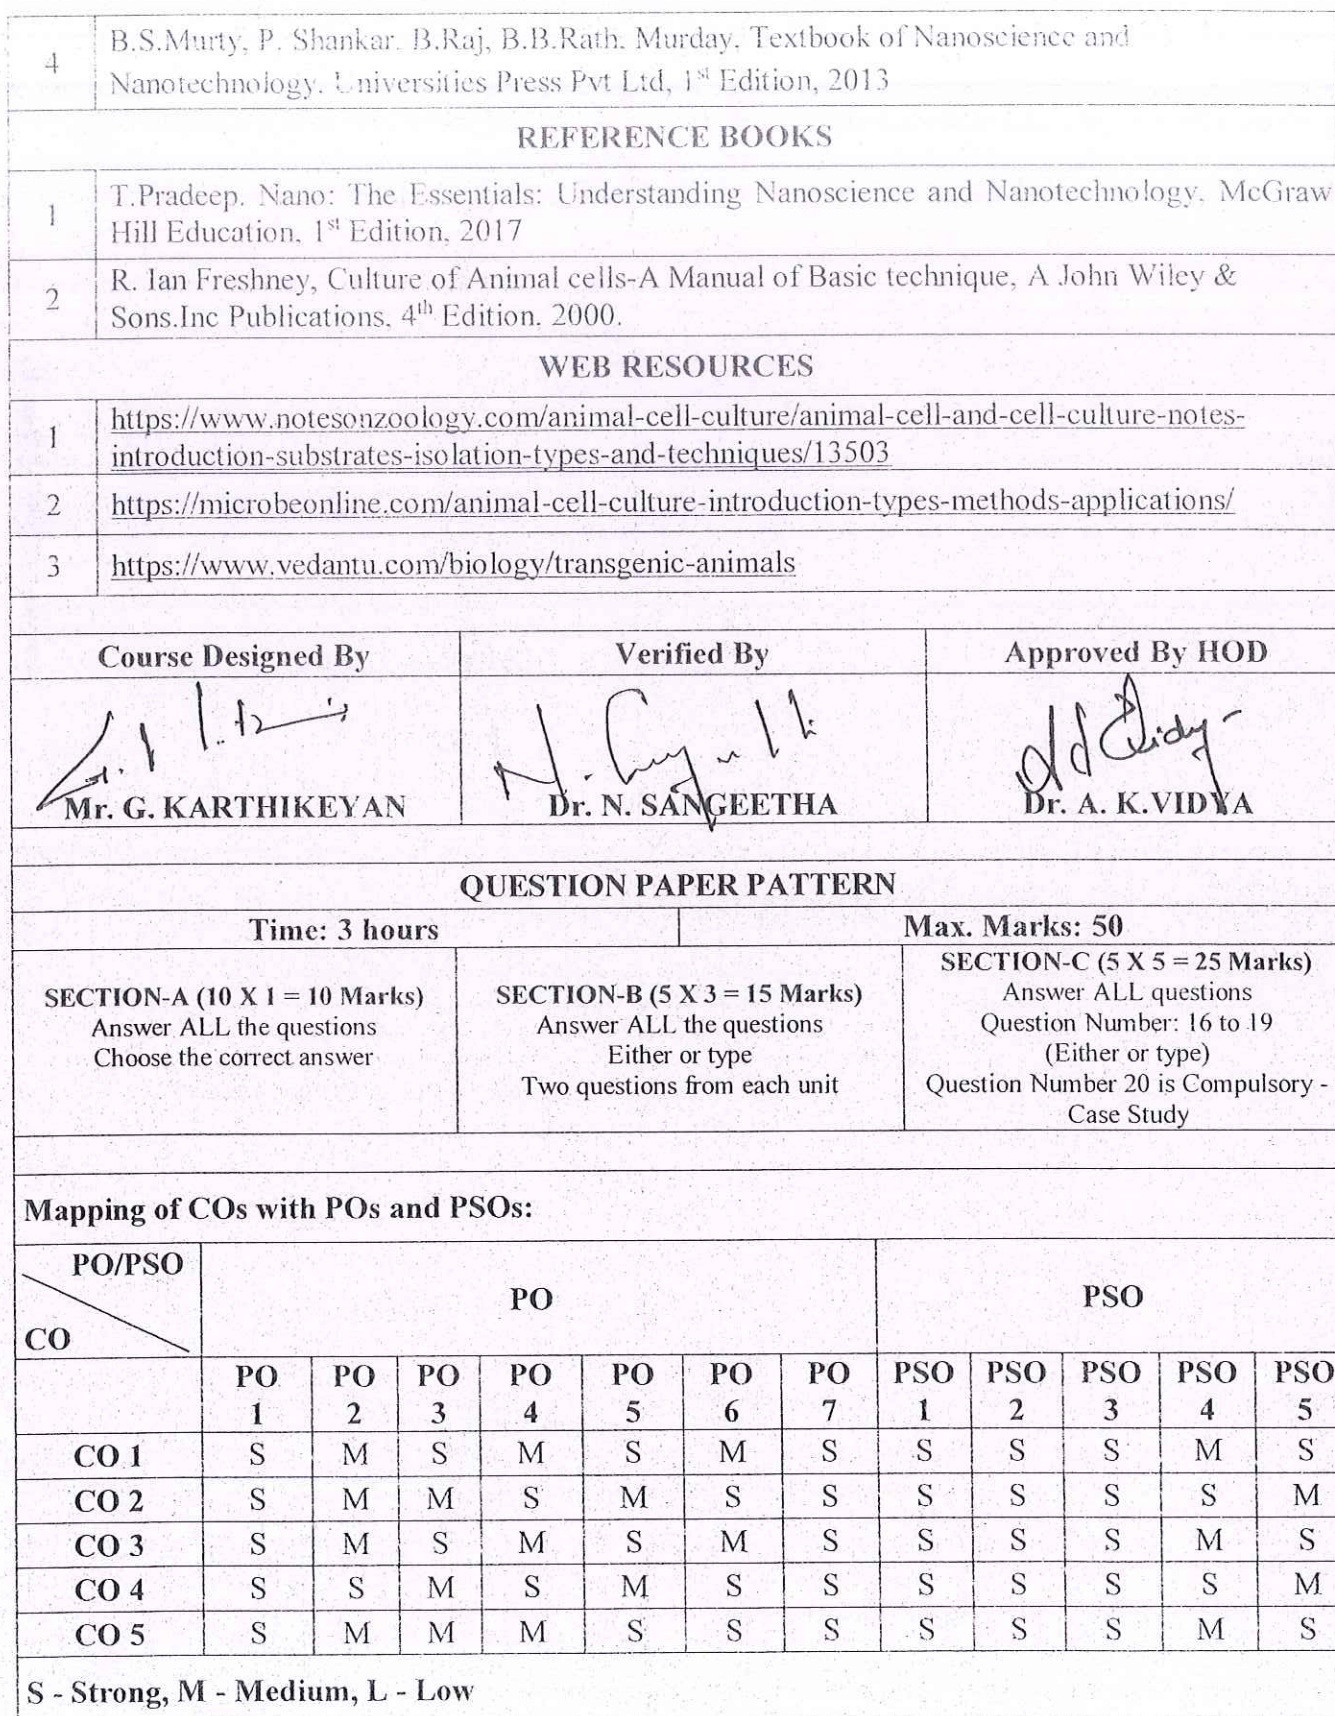 4
B.S.Murty, P. Shankar. B.Raj, B.B.Rath. Murday. Textbook of Nanoscience and
Nanotechnology. Universities Press Pvt Ltd, 1st Edition, 2013
REFERENCE BOOKS
1
T.Pradeep. Nano: The Essentials: Understanding Nanoscience and Nanotechnology. McGraw
Hill Education. 1st Edition. 2017
2
R. Ian Freshney, Culture of Animal cells-A Manual of Basic technique, A John Wiley &
Sons.Inc Publications. 4th Edition. 2000.
WEB RESOURCES
1
https://www.notesonzoology.com/animal-cell-culture/animal-cell-and-cell-culture-notes-
introduction-substrates-isolation-types-and-techniques/13503
2 https://microbeonline.com/animal-cell-culture-introduction-types-methods-applications/
3 https://www.vedantu.com/biology/transgenic-animals
Course Designed By Verified By Approved By HOD
Mr. G. KARTHIKEYAN Dr. N. SANGEETHA Dr. A. K.VIDYA
QUESTION PAPER PATTERN
Time: 3 hours Max. Marks: 50
SECTION-A (10 X 1 = 10 Marks)
Answer ALL the questions
Choose the correct answer
SECTION-B (5 X 3 = 15 Marks)
Answer ALL the questions
Either or type
Two questions from each unit
SECTION-C (5 X 5 = 25 Marks)
Answer ALL questions
Question Number: 16 to 19
(Either or type)
Question Number 20 is Compulsory -
Case Study
Mapping of COs with POs and PSOs:
PO/PSO
CO
PO PSO
PO 1 PO 2 PO 3 PO 4 PO 5 PO 6 PO 7 PSO 1 PSO 2 PSO 3 PSO 4 PSO 5
CO 1 S M S M S M S S S S M S
CO 2 S M M S M S S S S S S M
CO 3 S M S M S M S S S S M S
CO 4 S S M S M S S S S S S M
CO 5 S M M M S S S S S S M S
S - Strong, M - Medium, L - Low